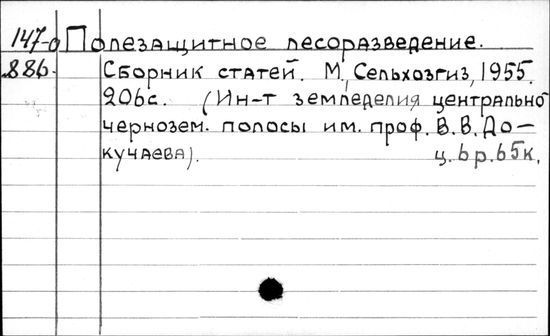 147-о Полезащитное лесоразведение.
886. Сборник статей. М, Сельхозгиз, 1955.
206с. (Ин-т земледелия центрально
чернозем. полосы им. проф. В.В. До-
кучаева). ц. 6р. 65к.